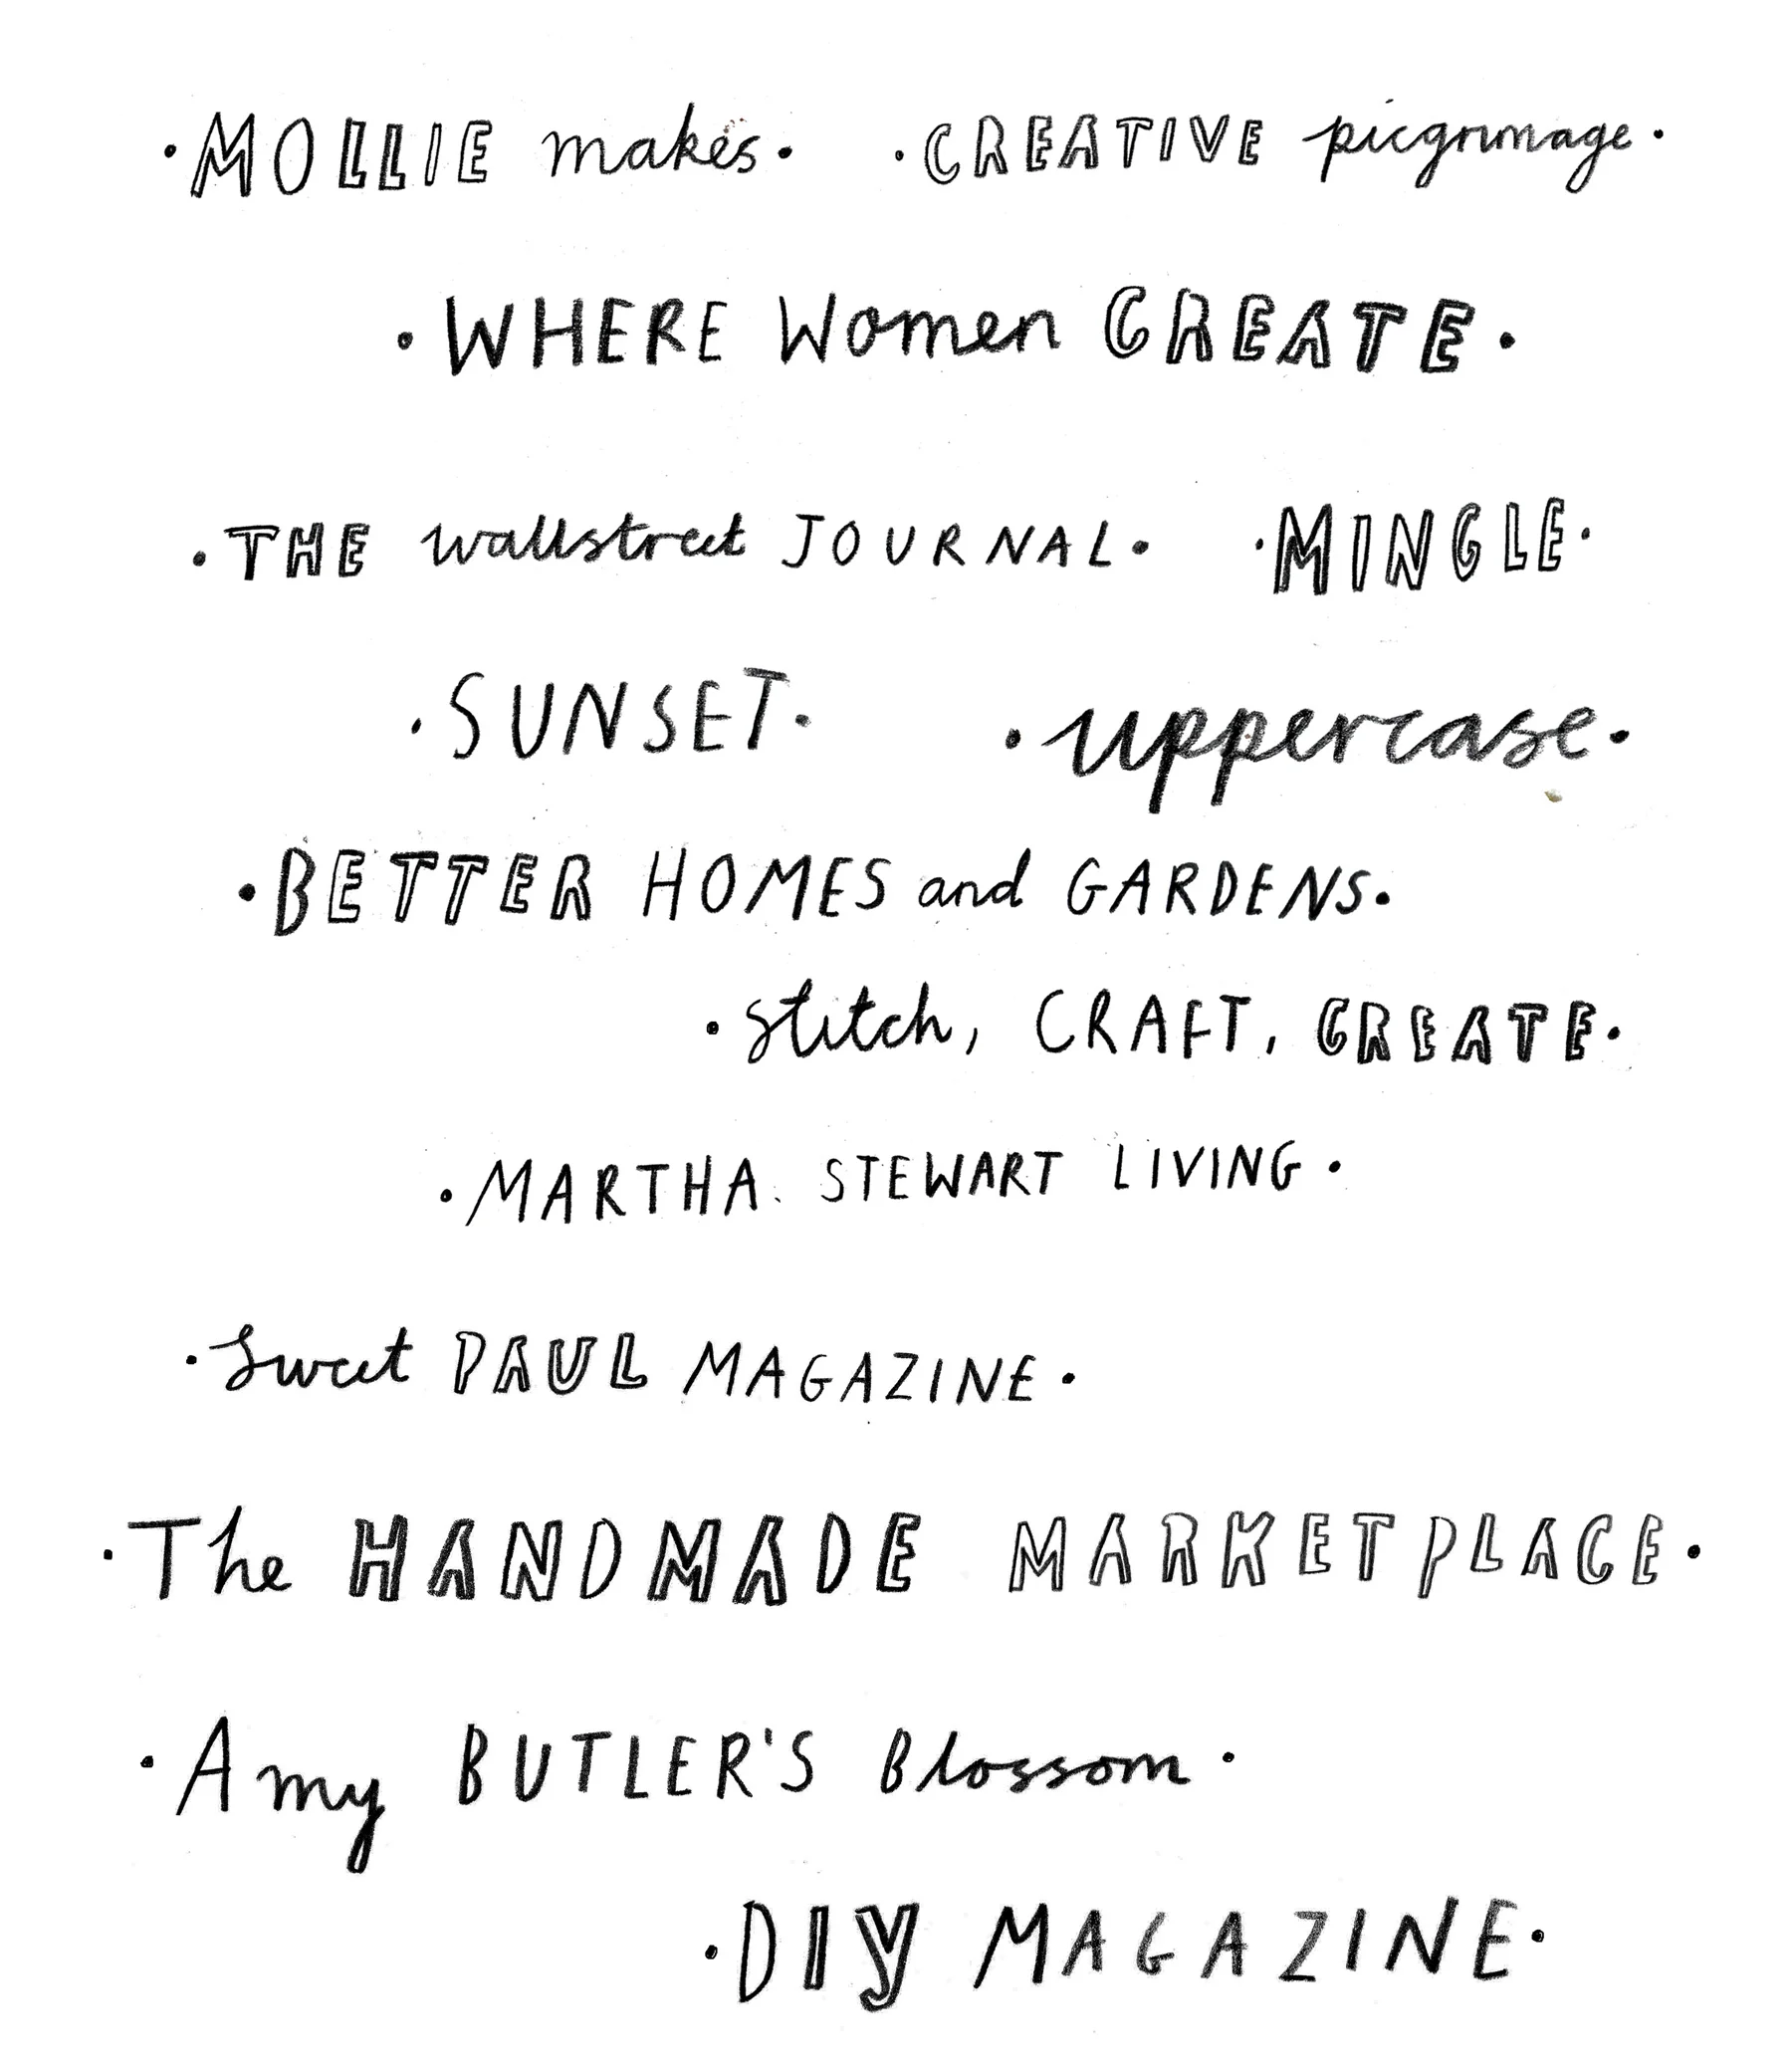 ·MOLLIE makes· ·CREATIVE picgrimage·
·WHERE Women CREATE·
·THE wallstreet JOURNAL· ·MINGLE·
·SUNSET· ·uppercase·
·BETTER HOMES and GARDENS·
·stitch, CRAFT, CREATE·
·MARTHA STEWART LIVING·
·Sweet PAUL MAGAZINE·
·The HANDMADE MARKETPLACE·
·Amy BUTLER'S Blossom·
·DIY MAGAZINE·